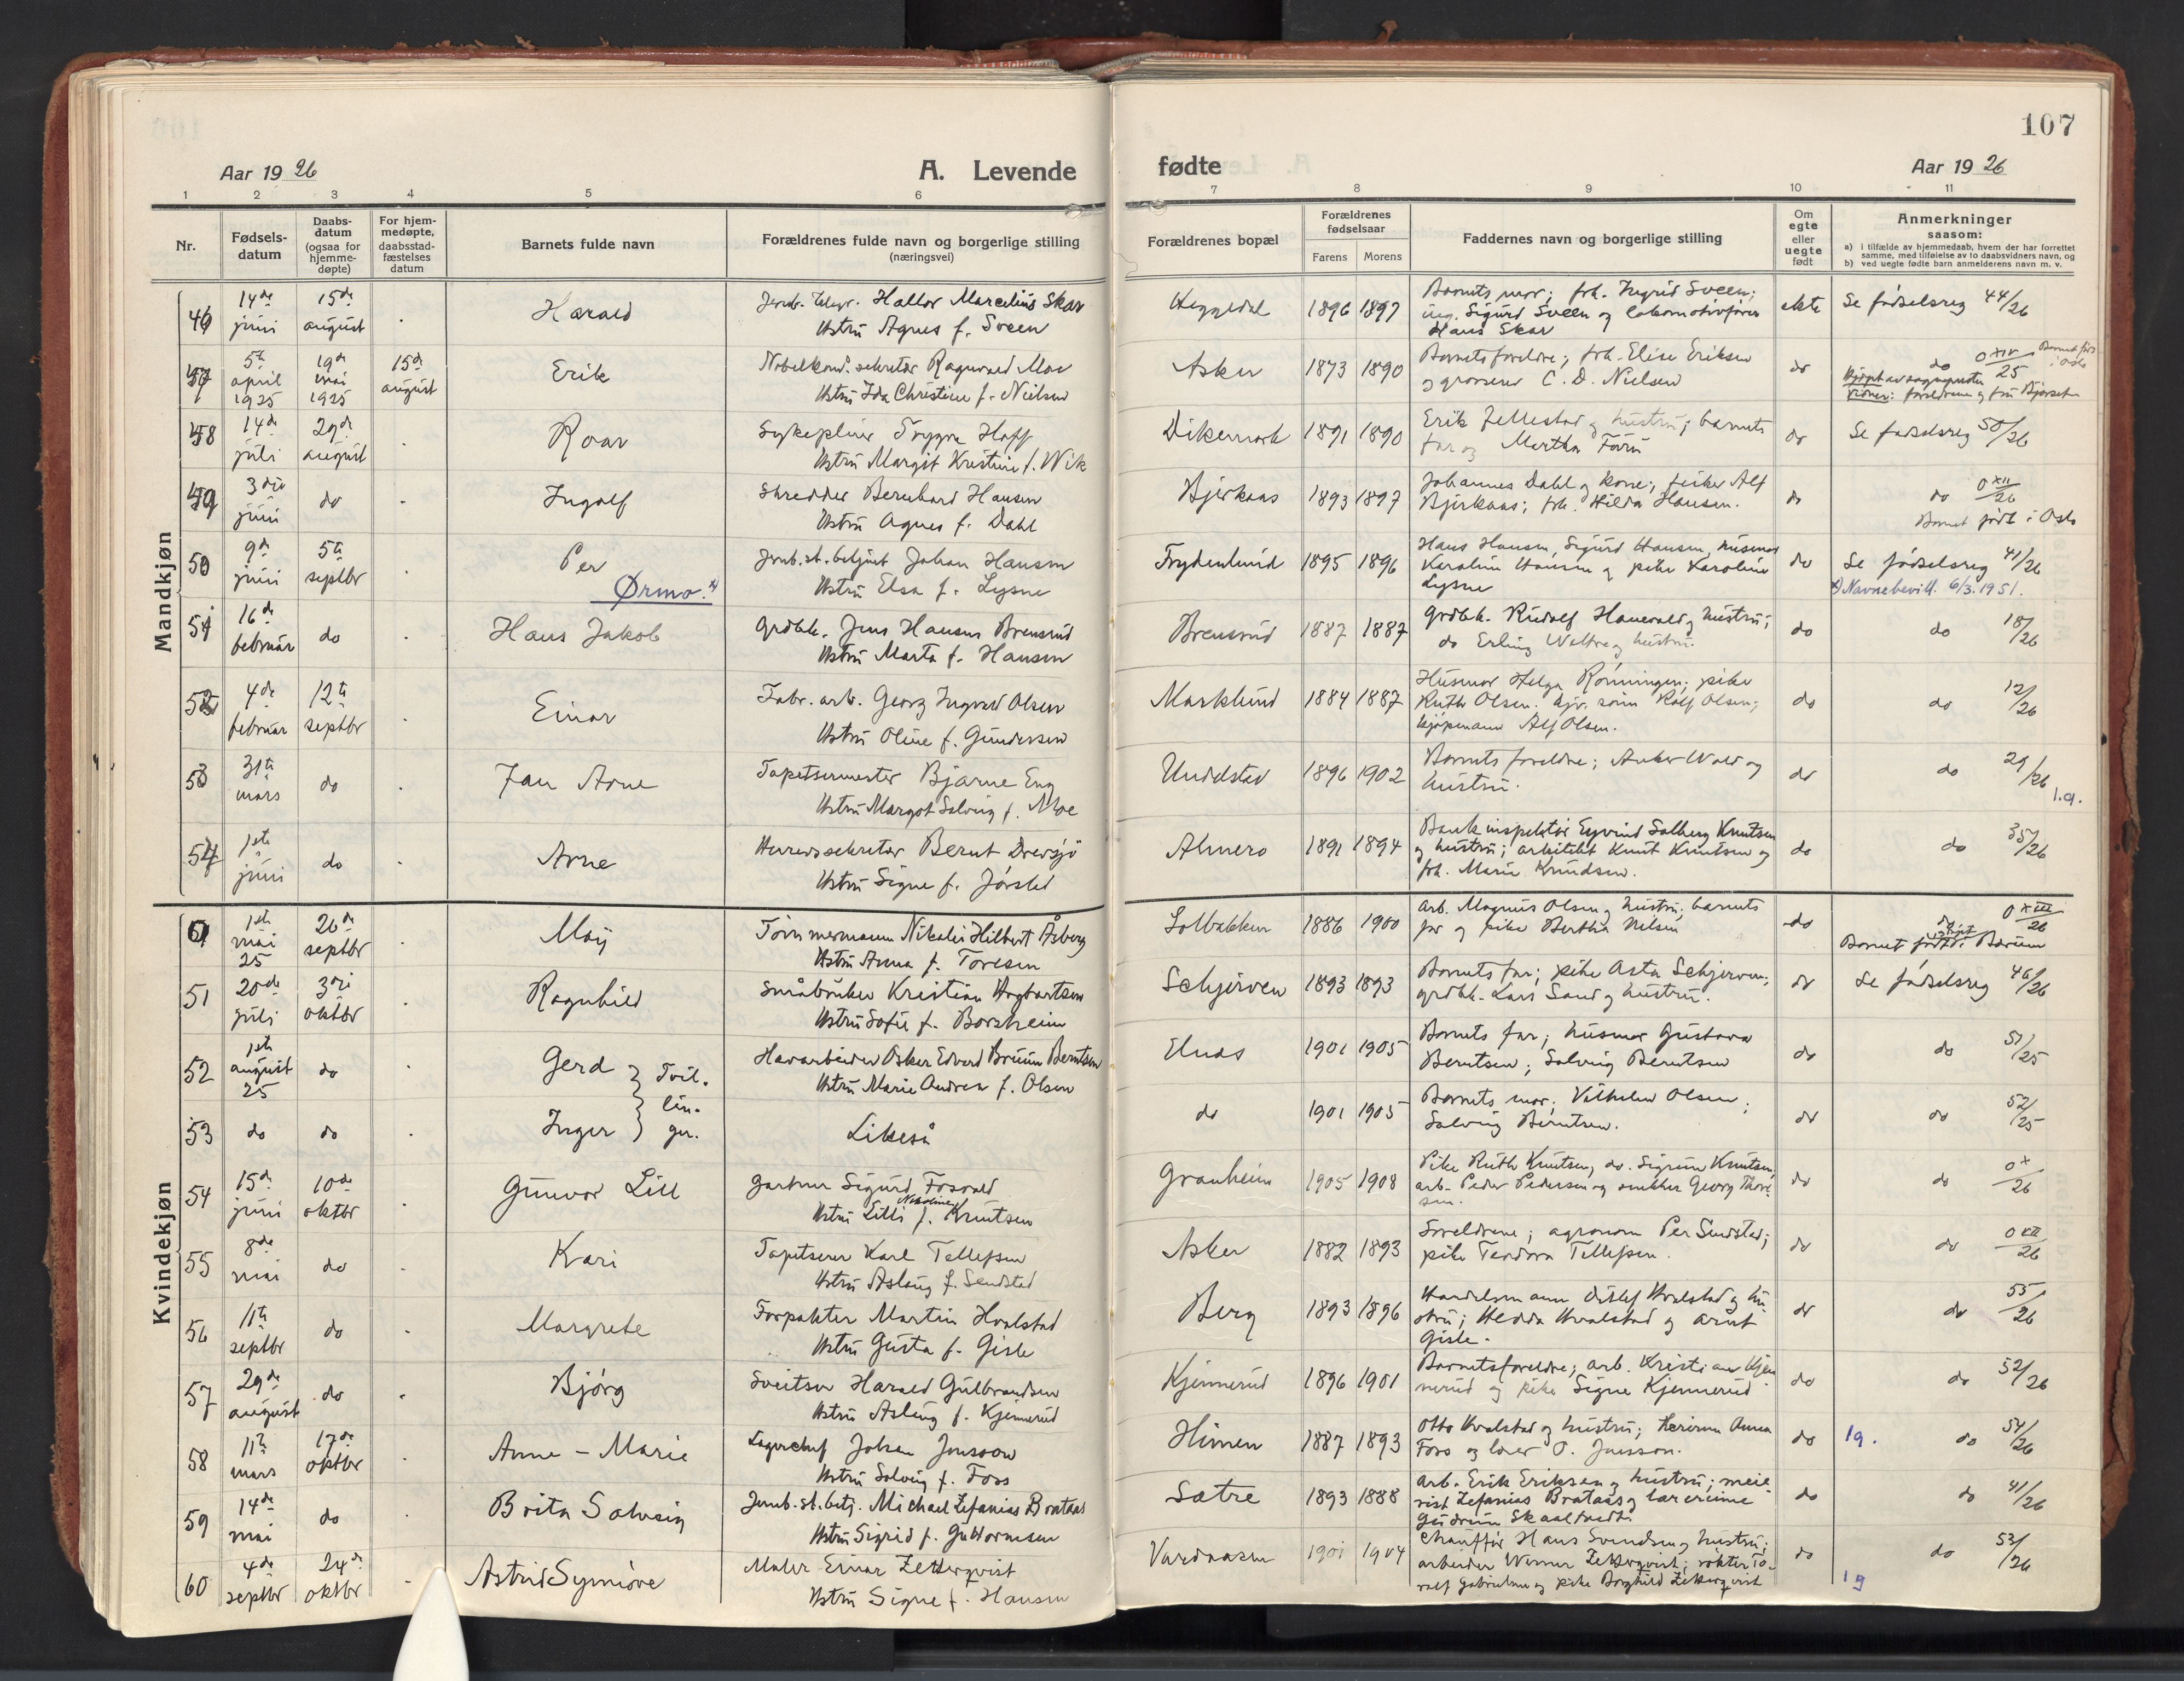 107
Aar 1926
A. Levende
fødte
Aar 1926
1 2 3 4 5 6 7 8 9 10 11
Nr.
Fødsels-
datum
Daabs-
datum
(ogsaa for
hjemme-
døpte)
For hjem-
medøpte,
daabsstad-
fæstelses
datum
Barnets fulde navn
Forældrenes fulde navn og borgerlige stilling
(næringsvei)
Forældrenes bopæl
Forældrenes
fødselsaar
Farens Morens
Faddernes navn og borgerlige stilling
Om
egte
eller
uegte
født
Anmerkninger
saasom:
a) i tilfælde av hjemmedaab, hvem der har forrettet
samme, med tilføielse av to daabsvidners navn, og
b) ved uegte fødte barn anmelderens navn m. v.
Mandkjøn
46 14de juni 15de august Harald
Hallor Marcelius Skar
Hstru Agnes f. Sveen
Heggedal 1896 1897
Barnets mor; frk. Ingrid Sveen;
ing. Sigurd Sveen og lokomotivfører
Hans Skar
ekte Se fødselsreg 44/26
47 5te april 1925 19de mai 1925 15de august Erik
Nobelkom. sekretær Ragnvald Moe
Hstru Ida Christine f. Nielsen
Asker 1873 1890
Barnets foreldre; frk. Elise Eriksen
og grosserer C. D. Nielsen
do do 0 XIV/25 Barnet født i Oslo
vidner: foreldrene og fru
48 14de juli 29de august Roar
Sykepleier Trygve Hoff
Hstru Margit Kristine f. Wik
Dikemark 1891 1890
Erik Jellestad og hustru; barnets
far og Martha
do Se fødselsreg 50/26
49 3die juni do Ingolf
Skredder Bernhard Hansen
Hstru Agnes f. Dahl
Bjerkaas 1893 1897
Johannes Dahl og kone; fisker Alf
Bjerkaas; frk. Hilda Hansen.
do do 0 XII/26
Barnet født i Oslo
50 9de juni 5te septbr Per
Ørmo. x)
Jernb.st.betjent Johan Hansen
Hstru Elsa f. Lysne
Frydenlund 1895 1896
Hans Hansen, Sigurd Hansen, husmor
Karoline Hansen og pike Karoline
Lysne
do Se fødselsreg 41/26
x) Navnebevill. 6/3.1951.
51 16de februar do Hans Jakob
Grdbk. Jens Hansen Brensrud
Hstru Marta f. Hansen
Brensrud 1887 1887
Grdbk. Rudolf Hanevold og hustru;
do Erling Weltre og hustru.
do do 18/26
52 4de februar 12te septbr Einar
Fabr. arb. Georg Ingvald Olsen
Hstru Oline f. Gundersen
Marklund 1884 1887
Husmor Helga Rønningen; pike
Ruth Olsen. Rolf Olsen;
kjøpmann Alf Olsen.
do do 12/26
53 31te mars do Jan Arne
Tapetsermester Bjarne Eng
Hstru Margot Solveig f. Moe
Unddstad 1896 1902
Barnets foreldre; Anker Wold og
hustru.
do do 29/26
1.9.
54 1ste juni do Arne
Herredssekretær Bernt Drevsjø
Hstru Signe f. Jørstad
Almero 1891 1894
Bankinspektør Eyvind Solberg Knutsen
og hustru; arkitekt Knut Knutsen og
frk. Marie Knudsen.
do do 35/26
Kvindekjøn
1ste mai 25 26de septbr Maij
Tømmermann Nikolai Hilbert Åsberg
Hstru Anna f. Toresen
Solbakken 1886 1900
Arb. Magnus Olsen og hustru; barnets
far og pike Bertha Nelsen
do do 0 XIII/26
Barnet født i Bærum
51 20de juli 3die oktbr Ragnhild
Småbruker Kristian Hagbartsen
Hstru Sofie f. Borsheim
Schjerven 1893 1893
Barnets far; pike Asta Schjerven;
grdbk. Lars Sand og hustru.
do Se fødselsreg 46/26
52 1ste august 25 do Gerd } Tvil-
Havarbeider Oskar Edvard Bruun Berntsen
Hstru Marie Andrea f. Olsen
Elnes 1901 1905
Barnets far; husmor Gustava
Berntsen; Solveig Berntsen
do do 51/25
53 do do Inger } lin-
ger.
Likeså
do 1901 1905
Barnets mor; Vilhelm Olsen;
Solveig Berntsen.
do do 52/25
54 15de juni 10de oktbr Gunvor Lill
Gartner Sigurd Fosvold
Hstru Lilli Nikoline f. Knutsen
Granheim 1905 1908
Pike Ruth Knutsen, do. Sigrun Knutsen,
arb. Peder Pedersen og snekker Georg Thore-
sen.
do do 0 X/26
55 8de mai do Kari
Tapetserer Karl Tellefsen
Hstru Aslaug f. Sendstad
Asker 1882 1893
Foreldrene; agronom Per Sendstad;
pike Teodora Tellefsen.
do do 0 XII/26
56 11te septbr do Margrete
Forpakter Martin Hvalstad
Hstru Gusta f. Gisle
Berg 1893 1896
Handelsmann Ditlef Hvalstad og hu-
stru; Hedda Hvalstad og Arnt
Gisle.
do do 55/26
57 29de august do Bjørg
Sveitser Harald Gulbrandsen
Hstru Aslaug f. Kjennerud
Kjennerud 1896 1901
Barnets foreldre; arb. Kristian Kjen-
nerud og pike Signe Kjennerud
do do 52/26
58 11te mars 17de oktbr Anne - Marie
Lagerchef Johan Jonsson
Hstru Solveig f. Foss
Himen 1887 1893
Otto Hvalstad og hustru; Anna
Foss og O. Jonsson.
do 19. do 54/26
59 14de mai do Brita Solveig
Jernb.st.betj. Michael Zefanias Brataas
Hstru Sigrid f. Guttormsen
Sætre 1893 1888
Arb. Erik Eriksen og hustru; meie-
rist Zefanias Brataas og lærerinne
Gudrun Skaaltveit.
do do 41/26
60 4de septbr 24de oktbr Astrid Synnøve
Maler Einar Zetterqvist
Hstru Signe f. Hansen
Vardaasen 1901 1904
Chauffør Hans Svendsen og hustru;
arbeider Werner Zetterqvist; røkter To-
ralf Gabrielsen og pike Borghild Zetterqvist
do 19 do 53/26